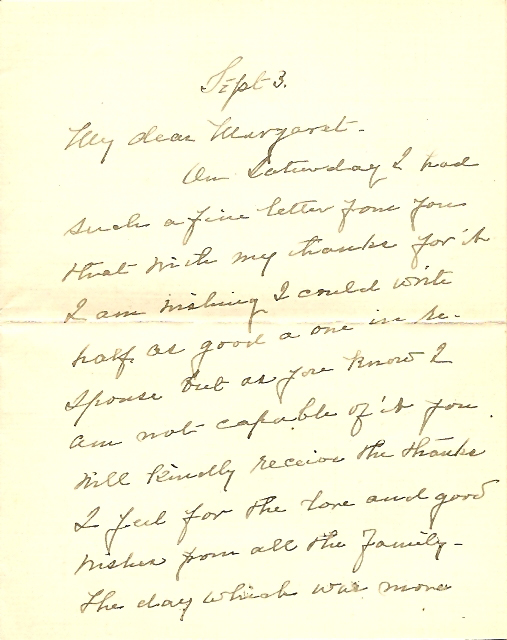 Sept 3.
My dear Margaret.
On Saturday I had
such a fine letter from you
that with my thanks for it
I am wishing I could write
half as good a one in re-
sponse but as you know I
am not capable of it you
will kindly receive the thanks
I feel for the love and good
wishes from all the family -
the day which was more